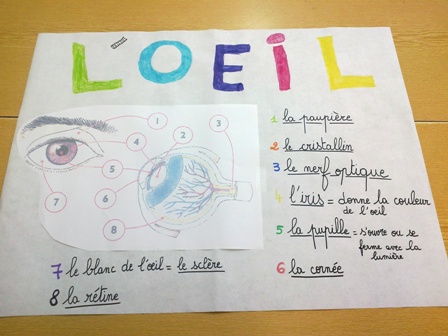 L'OEIL
1
2
3
4
5
6
7
8
1 la paupière
2 le cristallin
3 le nerf optique
4 l'iris = donne la couleur
de l'oeil
5 la pupille = s'ouvre ou se
ferme avec la
lumière
6 la cornée
7 le blanc de l'oeil = le sclère
8 la rétine